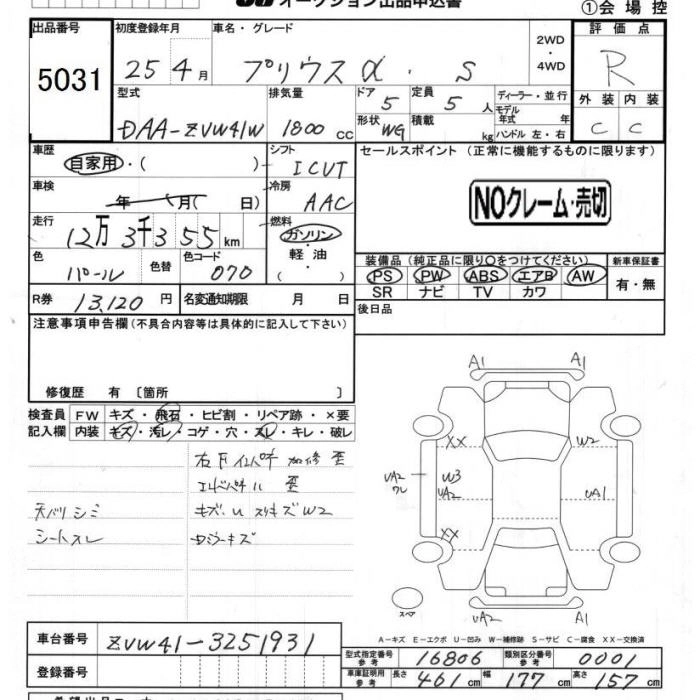 オークション出品申込書
①会場控
出品番号 5031
初度登録年月 25 4月
車名・グレード プリウスα・S
2WD・4WD
評価点 R
型式 DAA-ZVW41W
排気量 1800 cc
ドア 5
形状 WG
定員 5人
積載 kg
ディーラー・並行
モデル年式 年
ハンドル 左・右
外装 内装
C C
車歴 自家用・( )
シフト ICVT
セールスポイント (正常に機能するものに限ります)
車検 年 月( 日)
冷房 AAC
NOクレーム・売切
走行 12万3千355km
燃料 ガソリン・軽油・( )
色 パール 色替
色コード 070
装備品 (純正品に限り○をつけてください)
新車保証書
PS PW ABS エアB AW
SR ナビ TV カワ
有・無
R券 13,120円
名変通知期限 月 日
後日品
注意事項申告欄(不具合内容等は具体的に記入して下さい)
修復歴 有〔箇所 〕
検査員記入欄
FW キズ・飛石・ヒビ割・リペア跡・×要
内装 キズ・汚レ・コゲ・穴・スレ・キレ・破レ
天バリシミ
シートスレ
A1 A1
XX W2
UA2
W3
UA2 UA1
XX
UA2 A1
スペア
A-キズ E-エクボ U-凹み W-補修跡 S-サビ C-腐食 XX-交換済
車台番号 ZVW41-3251931
登録番号
型式指定番号参考 16806
類別区分番号参考 0001
車庫証明用参考 長さ 461cm 幅 177cm 高さ 157cm